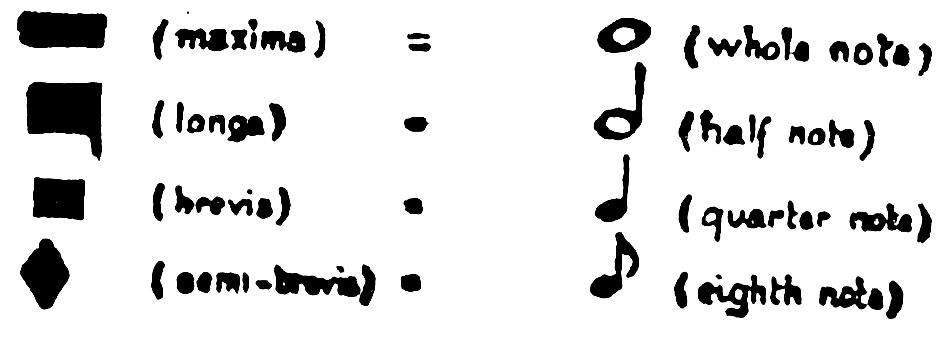 (maxima) = (whole note)
(longa) = (half note)
(brevis) = (quarter note)
(semi-brevis) = (eighth note)